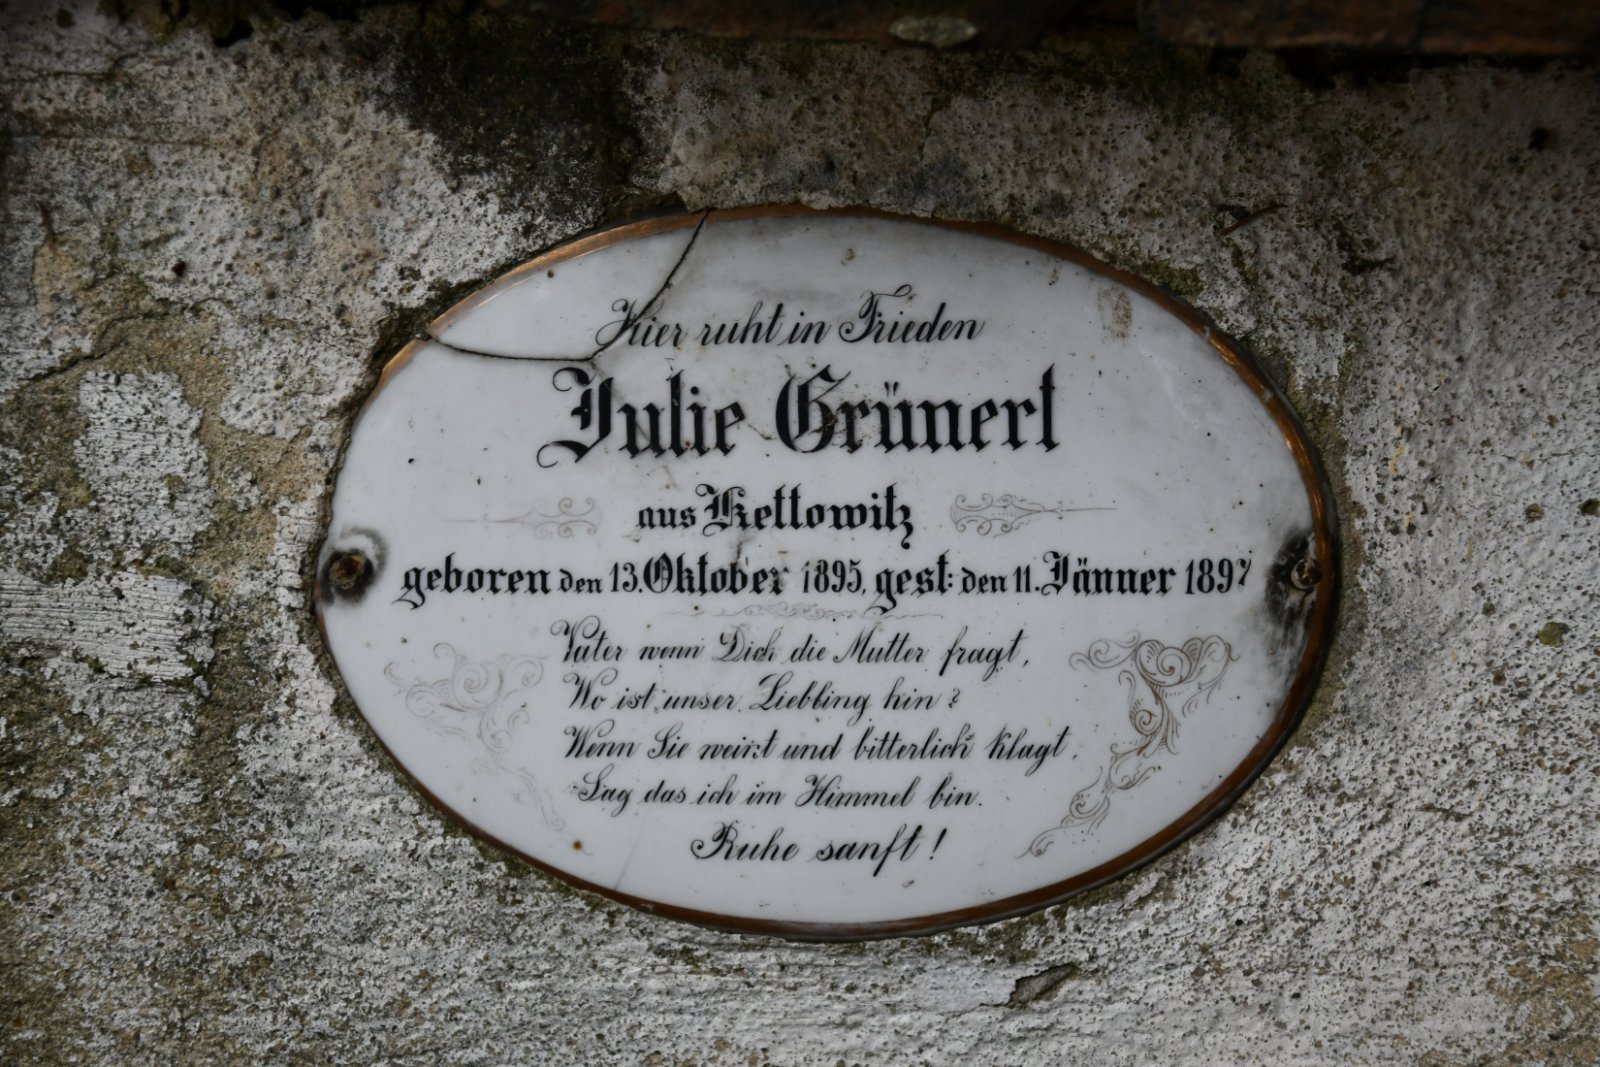 Hier ruht in Frieden
Julie Grünert
aus Kettowitz
geboren den 13. Oktober 1895, gest: den 11. Jänner 1897
Vater wenn Dich die Mutter fragt,
Wo ist unser Liebling hin?
Wenn Sie weint und bitterlich klagt,
Sag das ich im Himmel bin.
Ruhe sanft!